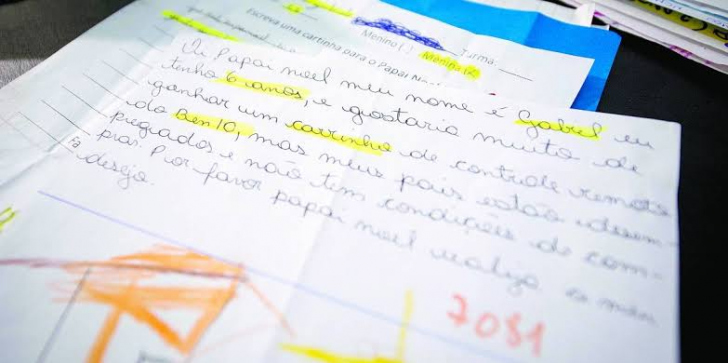 Escreva uma cartinha para o Papai
Menino ( ) Menina
Turma:
Oi Papai noel meu nome é Gabriel eu
tenho 6 anos, e gostaria muito de
ganhar um carrinho de controle remoto
do Ben 10, mas meus pais estão desem-
pregados e não tem condições de com-
prar. Por favor papai noel realize
desejo.
7081